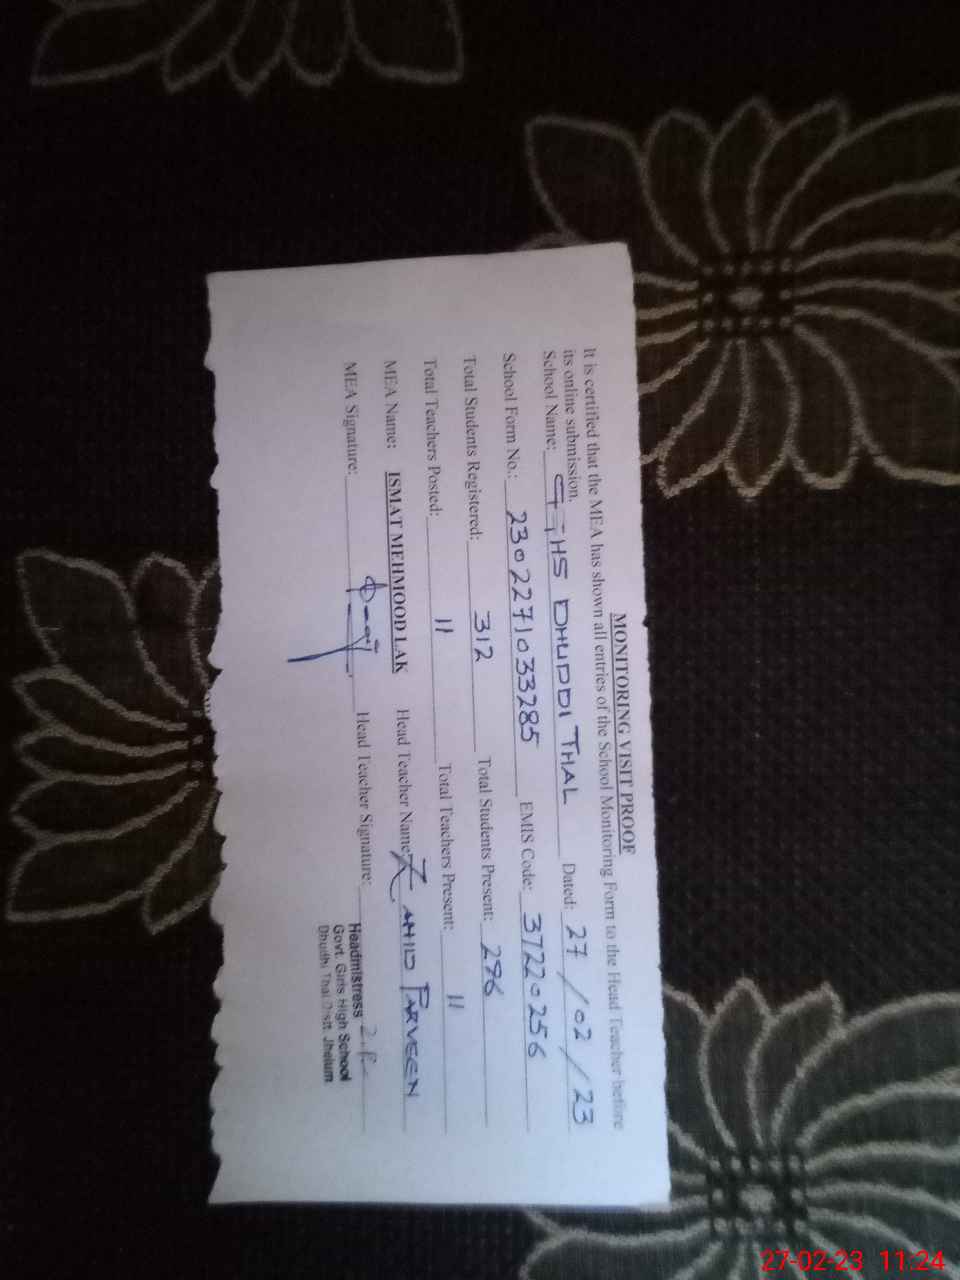 MONITORING VISIT PROOF
It is certified that the MEA has shown all entries of the School Monitoring Form to the Head Teacher before
its online submission.
School Name: GGHS DHUDDI THAL Dated: 27/02/23
School Form No.: 2302271033285 EMIS Code: 37220256
Total Students Registered: 312 Total Students Present: 296
Total Teachers Posted: 11 Total Teachers Present: 11
MEA Name: ISMAT MEHMOOD LAK Head Teacher Name: ZAHID PARVEEN
MEA Signature: Head Teacher Signature:
Headmistress
Govt. Girls High School
Dhudhi Thal Distt. Jhelum
27-02-23 11:24